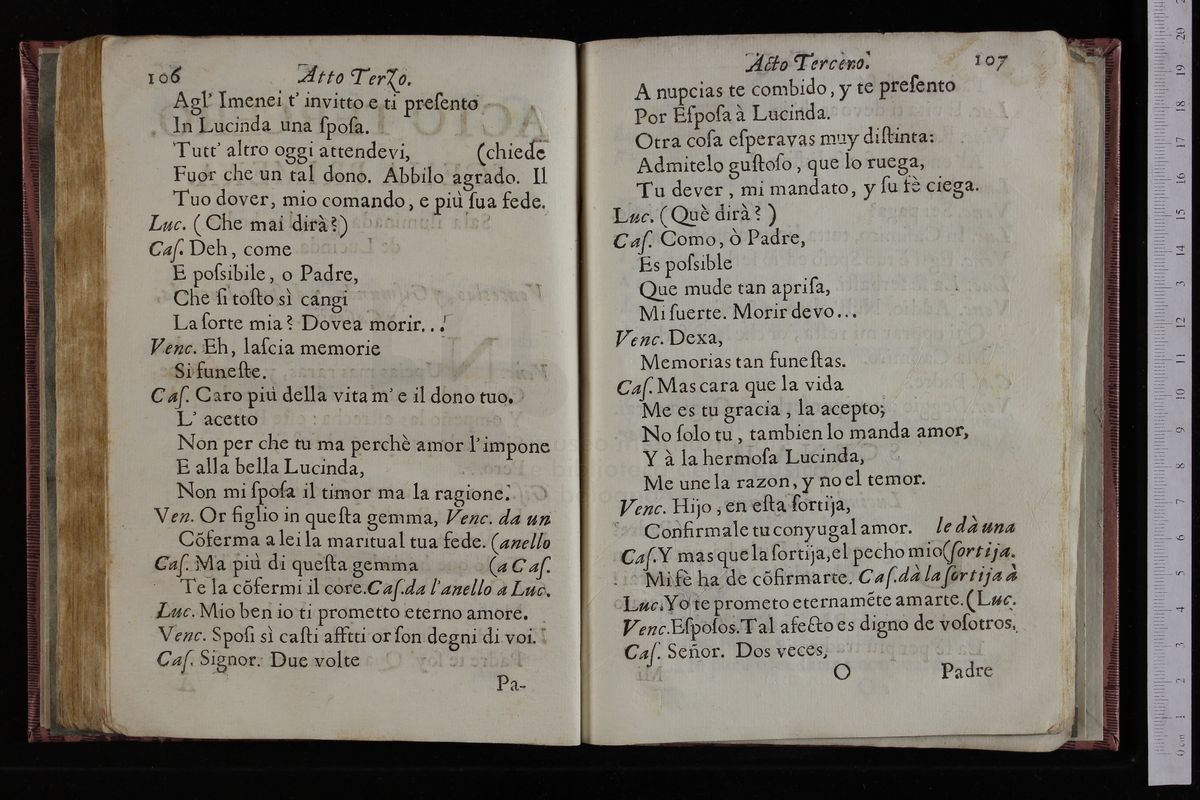 106 Atto Terzo.
Agl' Imenei t' invitto e ti preſento
In Lucinda una ſpoſa.
Tutt' altro oggi attendevi, (chiede
Fuor che un tal dono. Abbilo agrado. Il
Tuo dover, mio comando, e più ſua fede.
Luc. (Che mai dirà?)
Caſ. Deh, come
E poſsibile, o Padre,
Che ſi toſto sì cangi
La ſorte mia? Dovea morir...
Venc. Eh, laſcia memorie
Si funeſte.
Caſ. Caro più della vita m' e il dono tuo.
L' acetto
Non per che tu ma perchè amor l' impone
E alla bella Lucinda,
Non mi ſpoſa il timor ma la ragione.
Ven. Or figlio in queſta gemma, Venc. da un
Cõferma a lei la maritual tua fede. (anello
Caſ. Ma più di queſta gemma (a Caſ.
Te la cõfermi il core. Caſ. da l'anello a Luc.
Luc. Mio ben io ti prometto eterno amore.
Venc. Spoſi sì caſti affſti or ſon degni di voi.
Caſ. Signor. Due volte
Pa-
Acto Terceno. 107
A nupcias te combido, y te preſento
Por Eſpoſa à Lucinda.
Otra coſa eſperavas muy diſtinta:
Admitelo guſtoſo, que lo ruega,
Tu dever, mi mandato, y ſu fè ciega.
Luc. (Què dirà?)
Caſ. Como, ò Padre,
Es poſsible
Que mude tan apriſa,
Mi ſuerte. Morir devo...
Venc. Dexa,
Memorias tan funeſtas.
Caſ. Mas cara que la vida
Me es tu gracia, la acepto;
No ſolo tu, tambien lo manda amor,
Y à la hermoſa Lucinda,
Me une la razon, y no el temor.
Venc. Hijo, en eſta ſortija,
Confirmale tu conyugal amor. le dà una
Caſ. Y mas que la ſortija, el pecho mio (ſortija.
Mi fè ha de cõfirmarte. Caſ. dà la ſortija à
Luc. Yo te prometo eternamẽte amarte. (Luc.
Venc. Eſpoſos. Tal afecto es digno de voſotros.
Caſ. Señor. Dos veces,
O Padre